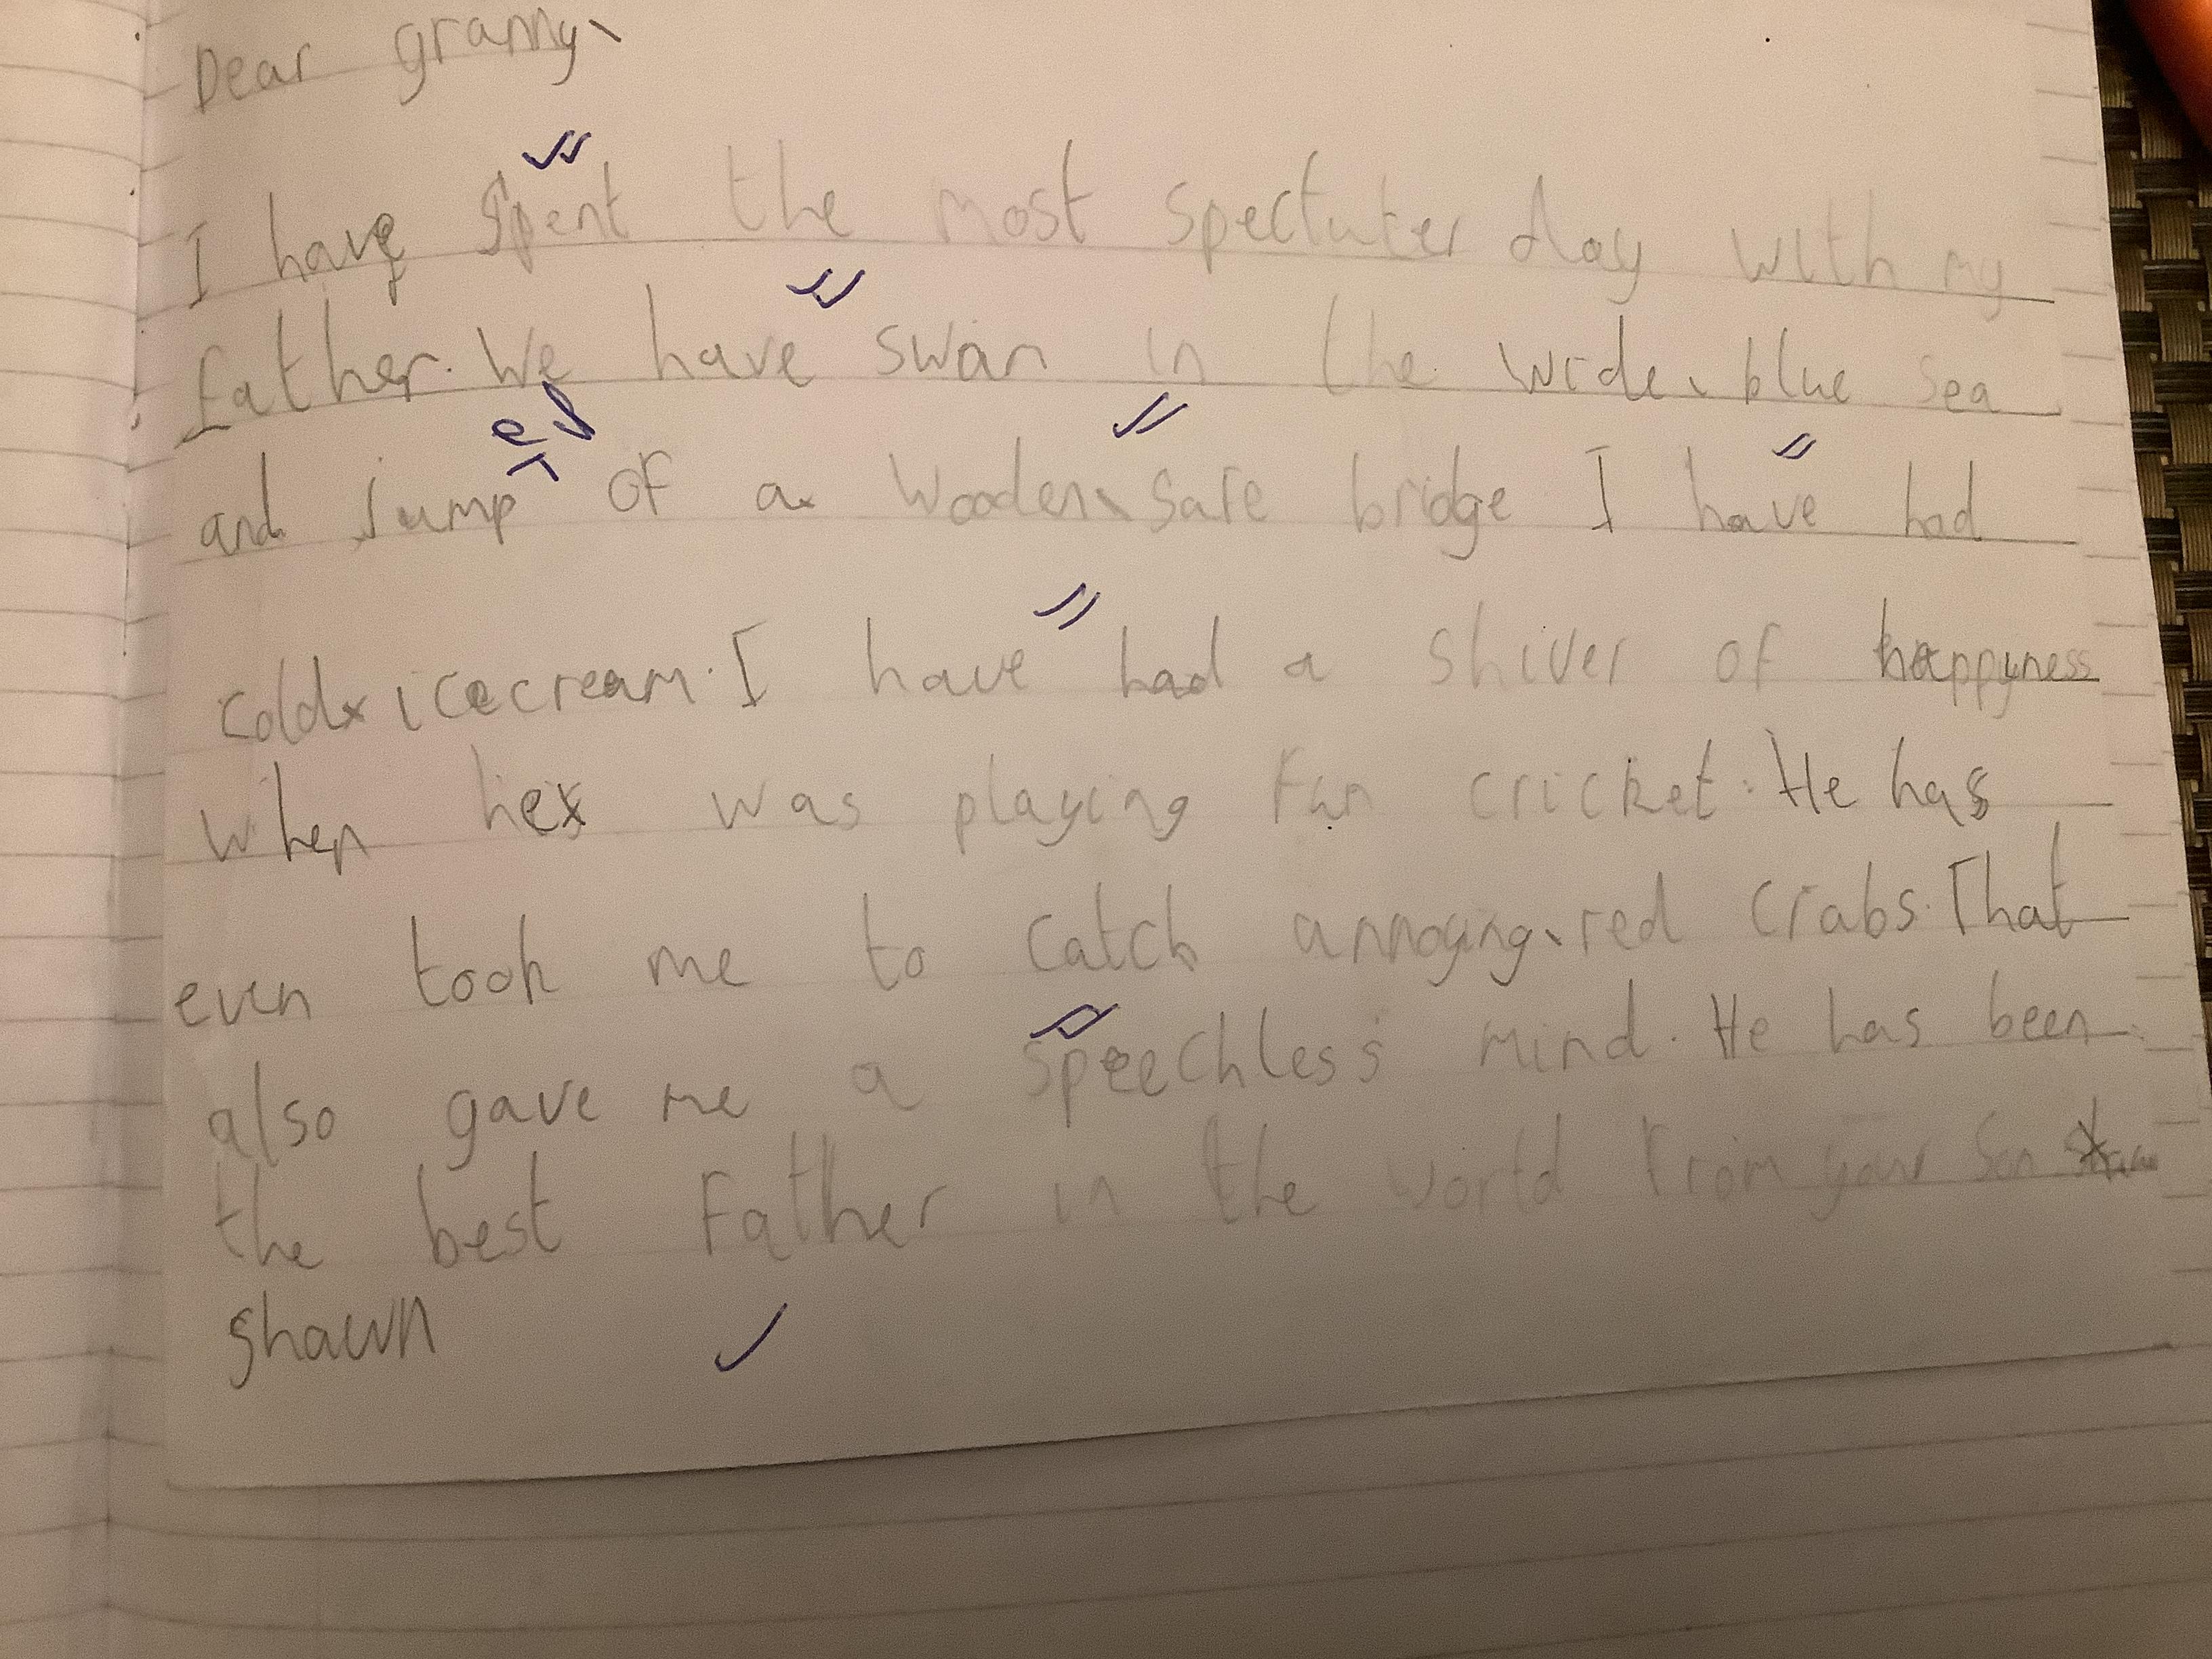 Dear granny,
I have spent the most spectuler day with my
father. We have swan in the wide, blue sea
and jumped of a wooden, safe bridge I have had
cold icecream. I have had a shiver of happyness
when he was playing fun cricket. He has
even took me to catch annoying, red crabs. That
also gave me a speechless mind. He has been
the best Father in the world from your son
shawn